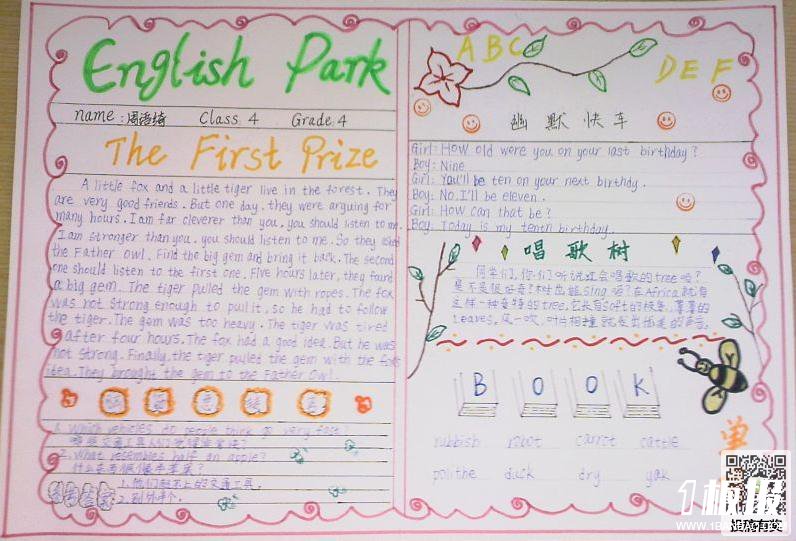 English Park
name: 周语绮 Class 4 Grade 4
The First Prize
A little fox and a little tiger live in the forest. They
are very good friends. But one day. they were arguing for
many hours. I am far cleverer than you, you should listen to me.
I am stronger than you, you should listen to me. So they asked
the Father Owl. Find the big gem and bring it back. The second
one should listen to the first one. Five hours later, they found
a big gem. The tiger pulled the gem with ropes. The fox
was not strong enough to pull it, so he had to follow
the tiger. The gem was too heavy. The tiger was tired
after four hours. The fox had a good idea. But he was
not strong. Finally, the tiger pulled the gem with the fox's
idea. They brought the gem to the Father Owl.
脑筋急转弯
1. Which vehicles do people think go very fast?
哪些交通工具人们觉得非常快?
2. What resembles half an apple?
什么东西很像半苹果?
1. 他们赶不上的交通工具.
2. 另外半个.
A B C
D E F
幽默快车
Girl: How old were you on your last birthday?
Boy: Nine.
Girl: You'll be ten on your next birthdy.
Boy: No, I'll be eleven.
Girl: How can that be?
Boy: Today is my tenth birthday.
唱歌树
同学们,你们听说过会唱歌的tree吗?
是不是很好奇?树也能sing吗?在Africa就有
这样一种奇特的tree,它长有soft的枝条,薄薄的
leaves,风一吹,叶片相撞就发出
的声音.
B O O K
rubbish robot carrot cattle
polithe duck dry yak
1板报
WWW.1BANBAO.COM